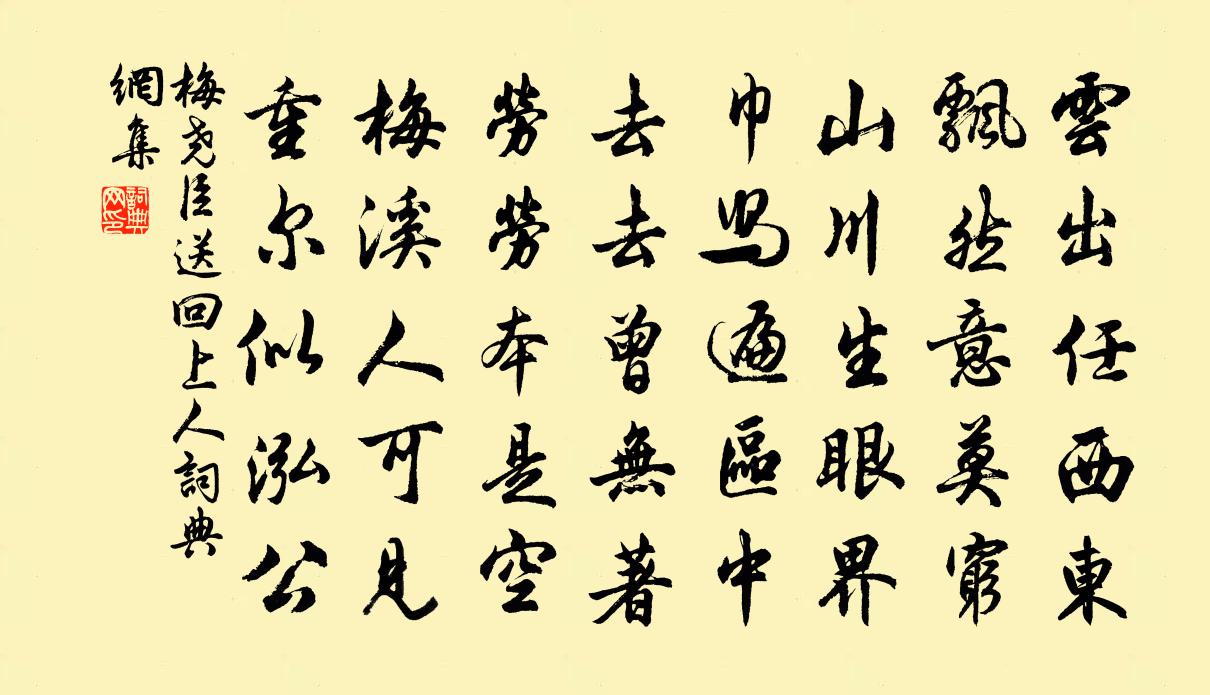 雲出任西東
飄然意莫窮
山川生眼界
巾舄遍區中
去去曾無著
勞勞本是空
梅溪人可見
重尔似泓公
梅尧臣送回上人詞典
網集
詞典
网印